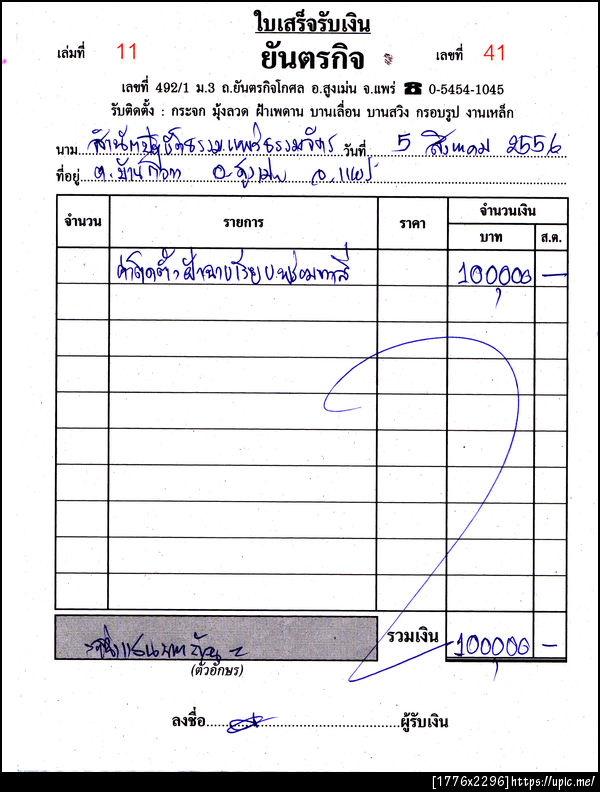 ใบเสร็จรับเงิน
เล่มที่ 11 ยันตรกิจ เลขที่ 41
เลขที่ 492/1 ม.3 ถ.ยันตรกิจโกศล อ.สูงเม่น จ.แพร่ ☎ 0-5454-1045
รับติดตั้ง : กระจก มุ้งลวด ฝ้าเพดาน บานเลื่อน บานสวิง กรอบรูป งานเหล็ก
นาม สำนักปฏิบัติธรรมแพร่ธรรมจักร วันที่ 5 สิงหาคม 2556
ที่อยู่ ต.บ้านกวาง อ.สูงเม่น จ.แพร่
จำนวน รายการ ราคา จำนวนเงิน
บาท ส.ต.
ค่าติดตั้งฝ้าฉาบเรียบพร้อมทาสี 100,000 —
หนึ่งแสนบาทถ้วน รวมเงิน 100,000 —
(ตัวอักษร)
ลงชื่อ ผู้รับเงิน
[1776x2296]https://upic.me/